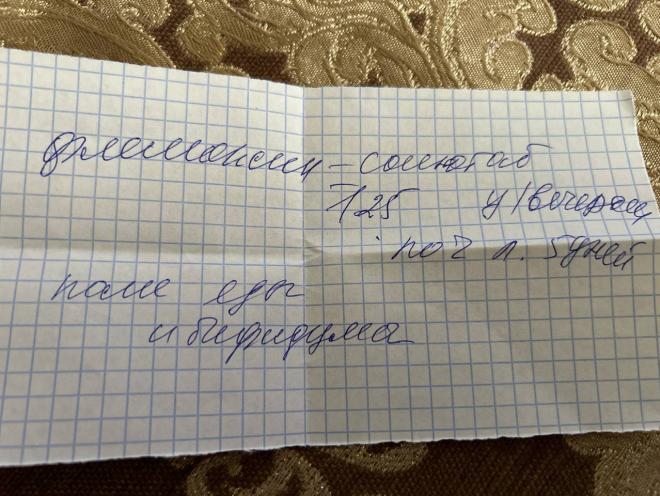 флемоксин – солютаб
125 у/вечером
по 2 л. 5 дней
после еды
и бифидума